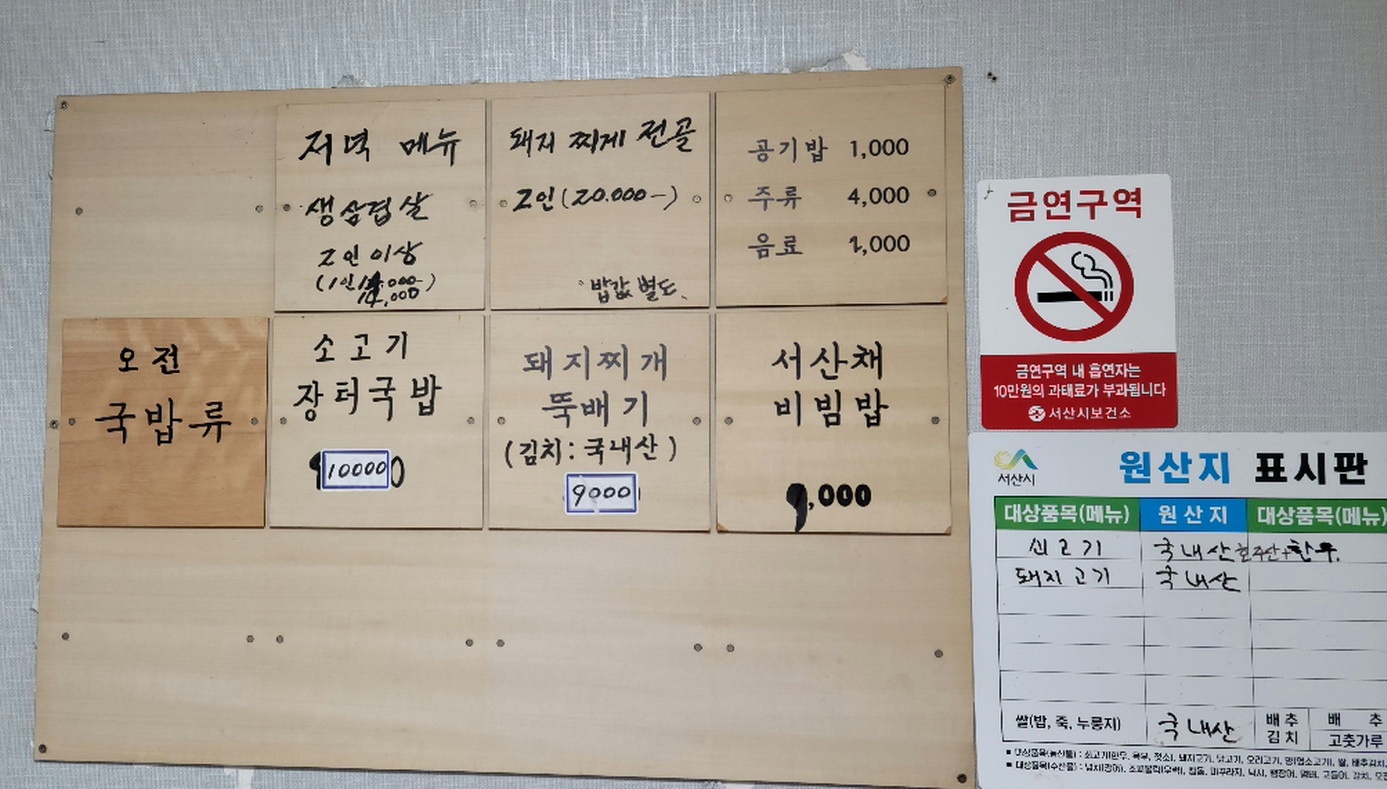 저녁 메뉴
생삼겹살
2인 이상
(1인
14,000)
돼지 찌게 전골
2인 (20.000-)
밥값 별도
공기밥 1,000
주류 4,000
음료 1,000
오전
국밥류
소고기
장터국밥
10000
돼지찌개
뚝배기
(김치: 국내산)
9000
서산채
비빔밥
9,000
금연구역
금연구역 내 흡연자는
10만원의 과태료가 부과됩니다
서산시보건소
서산시
원산지 표시판
대상품목(메뉴) 원산지 대상품목(메뉴)
쇠고기 국내산 호주산+한우
돼지고기 국내산
쌀(밥, 죽, 누룽지) 국내산
배추
김치
배추
고춧가루